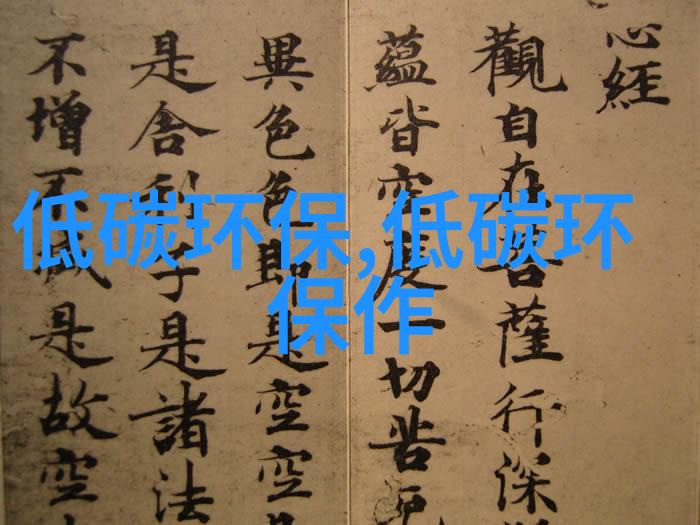 心經
觀自在菩薩行深
蘊皆空度一切苦厄
異色色即是空空是
是舍利子是諸法
不增不減是故空
低碳环保,低碳环
保作